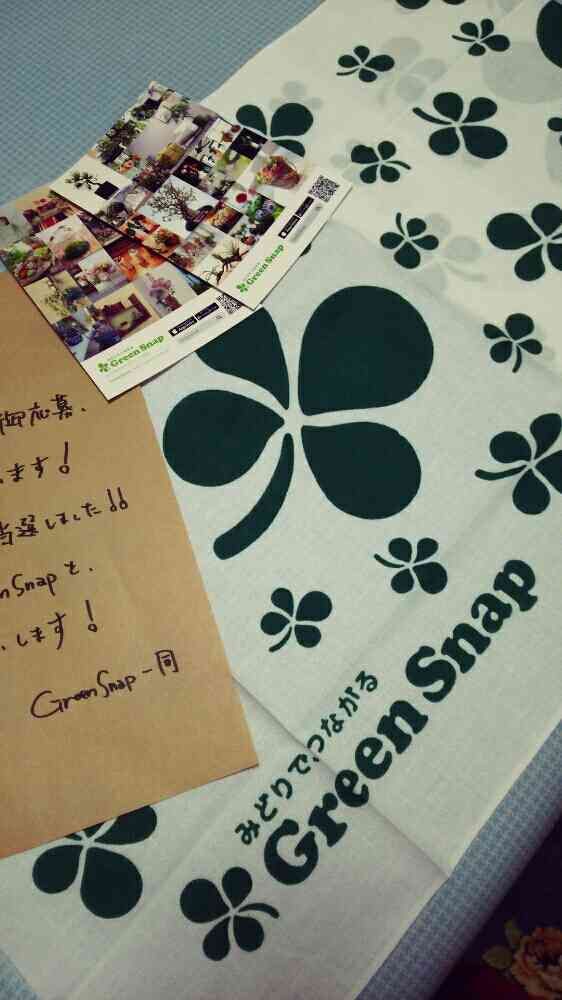 GreenSnap
GreenSnap
御応募、
ます!
当選しました!!
Snapと、
します!
GreenSnap一同
みどりでつながる
Green Snap